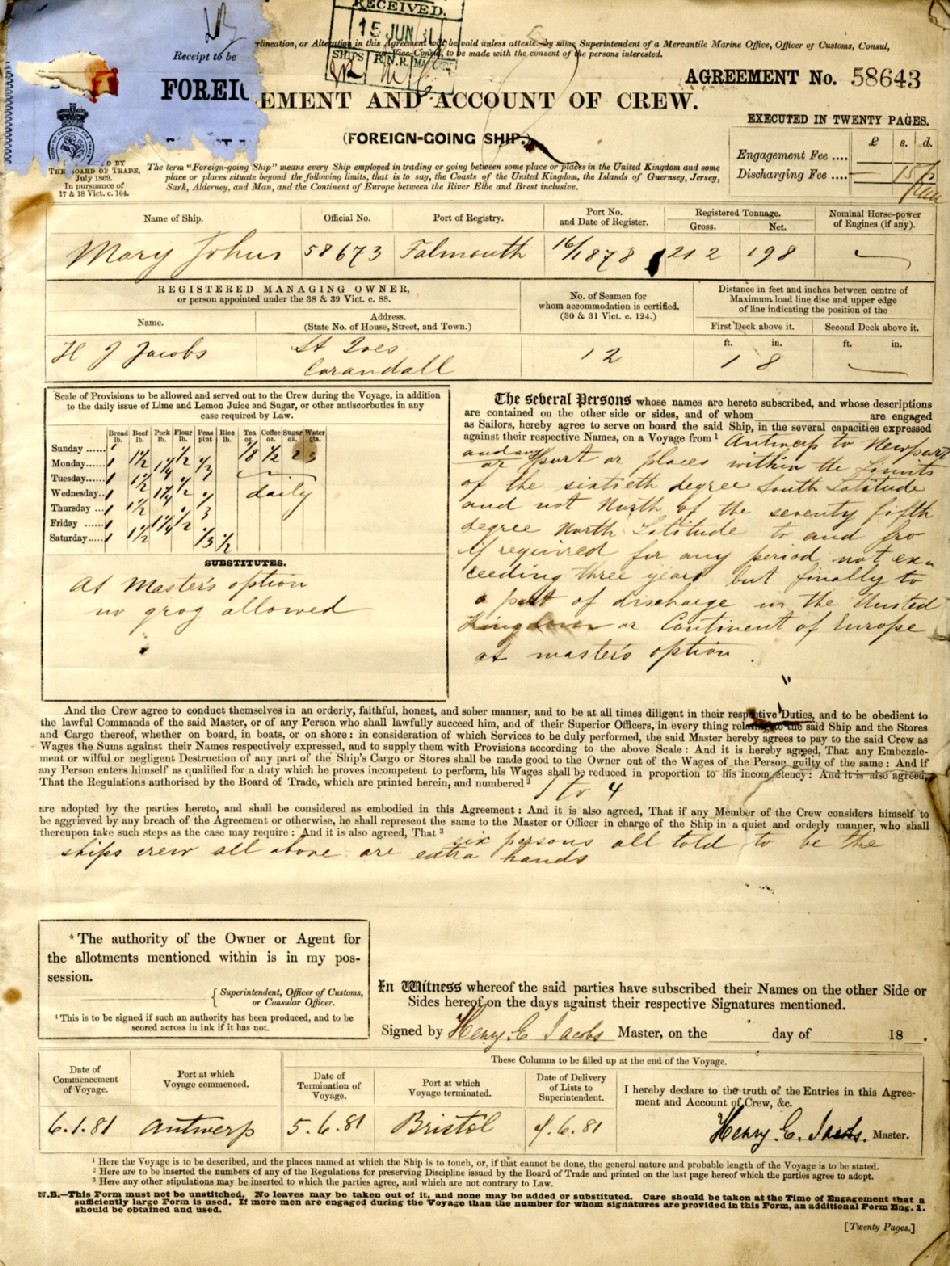 RECEIVED.
15 JUN
SHIPS R.N.R.
Receipt to be
or Alteration in this Agreement will be void unless attested by some Superintendent of a Mercantile Marine Office, Officer of Customs, Consul,
to be made with the consent of the persons interested.
AGREEMENT No. 58643
FOREIG
EMENT AND ACCOUNT OF CREW.
EXECUTED IN TWENTY PAGES.
(FOREIGN-GOING SHIP.)
£ s. d.
Engagement Fee ....
Discharging Fee ....
D BY
THE BOARD OF TRADE,
July 1869.
In pursuance of
17 & 18 Vict. c. 104.
The term "Foreign-going Ship" means every Ship employed in trading or going between some place or places in the United Kingdom and some
place or places situate beyond the following limits, that is to say, the Coasts of the United Kingdom, the Islands of Guernsey, Jersey,
Sark, Alderney, and Man, and the Continent of Europe between the River Elbe and Brest inclusive.
Name of Ship. Official No. Port of Registry. Port No. and Date of Register. Registered Tonnage. Gross. Net. Nominal Horse-power of Engines (if any).
Mary Johns 58673 Falmouth 16/1878 212 198
REGISTERED MANAGING OWNER,
or person appointed under the 38 & 39 Vict. c. 88.
Name. Address. (State No. of House, Street, and Town.)
No. of Seamen for whom accommodation is certified. (30 & 31 Vict. c. 124.)
Distance in feet and inches between centre of Maximum load line disc and upper edge of line indicating the position of the
First Deck above it. Second Deck above it.
ft. in. ft. in.
H J Jacobs St Ives 12 1 8
Scale of Provisions to be allowed and served out to the Crew during the Voyage, in addition
to the daily issue of Lime and Lemon Juice and Sugar, or other antiscorbutics in any
case required by Law.
Bread lb. Beef lb. Pork lb. Flour lb. Peas pint Rice lb. Tea oz. Coffee oz. Sugar oz. Water qts.
Sunday ...... 1 1½ ½ 1/8 ½ 2 3
Monday ..... 1 1¼ 1/3
Tuesday ..... 1 1½ ½
Wednesday.. 1 1¼ 1/3 daily
Thursday ... 1 1½ ½
Friday ...... 1 1¼ 1/3
Saturday..... 1 1½ ½
SUBSTITUTES.
At Master's option
no grog allowed
The several Persons whose names are hereto subscribed, and whose descriptions
are contained on the other side or sides, and of whom are engaged
as Sailors, hereby agree to serve on board the said Ship, in the several capacities expressed
against their respective Names, on a Voyage from¹ Antwerp to Newport
and any
or port or places within the Limits
of the sixtieth degree South Latitude
and not North of the seventy fifth
degree North Latitude to and fro
if required for any period not ex-
ceeding three years but finally to
a port of discharge in the United
Kingdom or Continent of Europe
at master's option.
And the Crew agree to conduct themselves in an orderly, faithful, honest, and sober manner, and to be at all times diligent in their respective Duties, and to be obedient to
the lawful Commands of the said Master, or of any Person who shall lawfully succeed him, and of their Superior Officers, in every thing relating to the said Ship and the Stores
and Cargo thereof, whether on board, in boats, or on shore: in consideration of which Services to be duly performed, the said Master hereby agrees to pay to the said Crew as
Wages the Sums against their Names respectively expressed, and to supply them with Provisions according to the above Scale: And it is hereby agreed, That any Embezzle-
ment or wilful or negligent Destruction of any part of the Ship's Cargo or Stores shall be made good to the Owner out of the Wages of the Person guilty of the same: And if
any Person enters himself as qualified for a duty which he proves incompetent to perform, his Wages shall be reduced in proportion to his incompetency: And it is also agreed,
That the Regulations authorised by the Board of Trade, which are printed herein, and numbered² 1 to 4
are adopted by the parties hereto, and shall be considered as embodied in this Agreement: And it is also agreed, That if any Member of the Crew considers himself to
be aggrieved by any breach of the Agreement or otherwise, he shall represent the same to the Master or Officer in charge of the Ship in a quiet and orderly manner, who shall
thereupon take such steps as the case may require: And it is also agreed, That³ six persons all told to be the
ships crew all above are extra hands
⁴ The authority of the Owner or Agent for
the allotments mentioned within is in my pos-
session.
Superintendent, Officer of Customs,
or Consular Officer.
⁴ This is to be signed if such an authority has been produced, and to be
scored across in ink if it has not.
In Witness whereof the said parties have subscribed their Names on the other Side or
Sides hereof on the days against their respective Signatures mentioned.
Signed by Henry C Jacobs Master, on the day of 18 .
These Columns to be filled up at the end of the Voyage.
Date of Commencement of Voyage. Port at which Voyage commenced. Date of Termination of Voyage. Port at which Voyage terminated. Date of Delivery of Lists to Superintendent.
I hereby declare to the truth of the Entries in this Agree-
ment and Account of Crew, &c.
6.1.81 Antwerp 5.6.81 Bristol 9.6.81 Henry C. Jacobs. Master.
¹ Here the Voyage is to be described, and the places named at which the Ship is to touch, or, if that cannot be done, the general nature and probable length of the Voyage is to be stated.
² Here are to be inserted the numbers of any of the Regulations for preserving Discipline issued by the Board of Trade and printed on the last page hereof which the parties agree to adopt.
³ Here any other stipulations may be inserted to which the parties agree, and which are not contrary to Law.
N.B.—This Form must not be unstitched. No leaves may be taken out of it, and none may be added or substituted. Care should be taken at the Time of Engagement that a
sufficiently large Form is used. If more men are engaged during the Voyage than the number for whom signatures are provided in this Form, an additional Form Eng. 1.
should be obtained and used.
[Twenty Pages.]